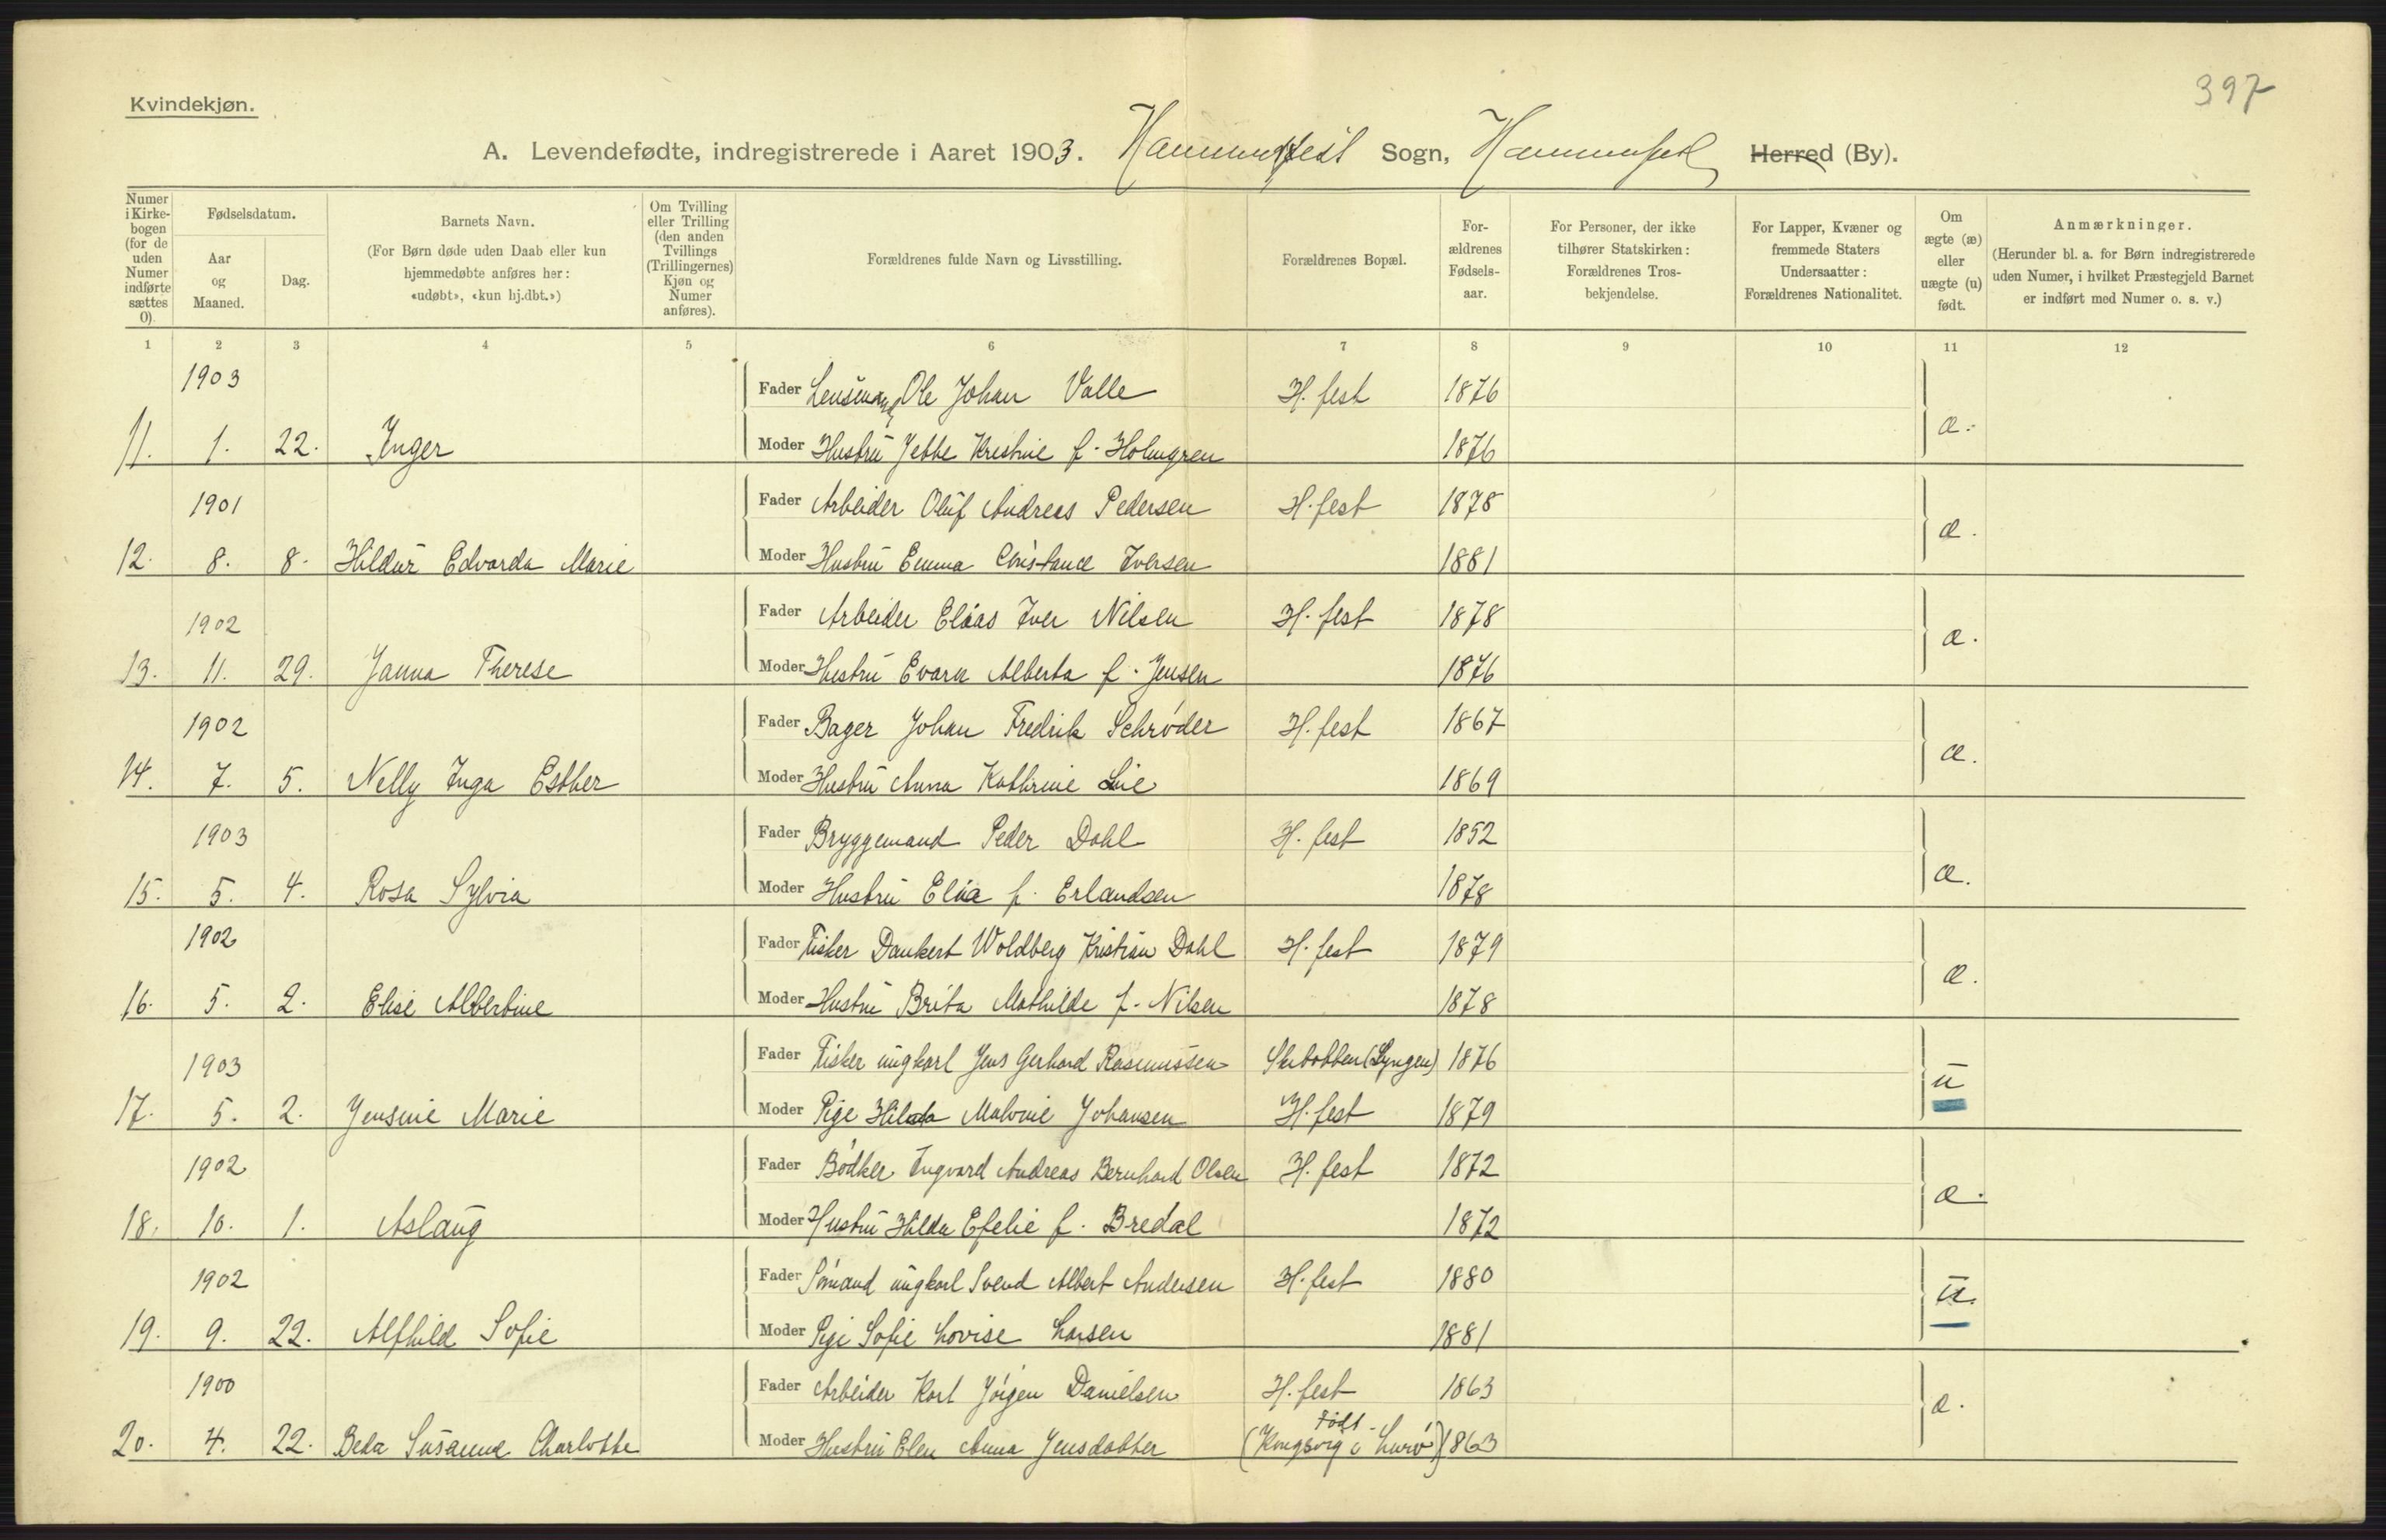 397
Kvindekjøn.
A. Levendefødte, indregistrerede i Aaret 1903. Hammerfest Sogn, Hammerfest Herred (By).
Numer i Kirke-bogen (for de uden Numer indførte sættes 0).
Fødselsdatum.
Aar og Maaned.
Dag.
Barnets Navn.
(For Børn døde uden Daab eller kun hjemmedøbte anføres her: «udøbt», «kun hj.dbt.»)
Om Tvilling eller Trilling (den anden Tvillings (Trillingernes) Kjøn og Numer anføres).
Forældrenes fulde Navn og Livsstilling.
Forældrenes Bopæl.
For-ældrenes Fødsels-aar.
For Personer, der ikke tilhører Statskirken: Forældrenes Tros-bekjendelse.
For Lapper, Kvæner og fremmede Staters Undersaatter: Forældrenes Nationalitet.
Om ægte (æ) eller uægte (u) født.
Anmærkninger.
(Herunder bl. a. for Børn indregistrerede uden Numer, i hvilket Præstegjeld Barnet er indført med Numer o. s. v.)
1 2 3 4 5 6 7 8 9 10 11 12
1903 Fader Lensmand Ole Johan Valle H.fest 1876
11. 1. 22. Inger Moder Hustru Jette Kristine f. Holmgren 1876 æ.
1901 Fader Arbeider Oluf Andreas Pedersen H.fest 1878
12. 8. 8. Hildur Edvarda Marie Moder Hustru Emma Constance Iversen 1881 æ.
1902 Fader Arbeider Elias Iver Nilsen H.fest 1878
13. 11. 29. Janna Therese Moder Hustru Evara Alberta f. Jensen 1876 æ.
1902 Fader Bager Johan Fredrik Schrøder H.fest 1867
14. 7. 5. Nelly Inga Esther Moder Hustru Anna Kathrine Lie 1869 æ.
1903 Fader Bryggemand Peder Dahl H.fest 1852
15. 5. 4. Rosa Sylvia Moder Hustru Elia f. Erlandsen 1878 æ.
1902 Fader Fisker Dankert Woldberg Kristian Dahl H.fest 1879
16. 5. 2. Elise Albertine Moder Hustru Brita Mathilde f. Nilsen 1878 æ.
1903 Fader Fisker ungkarl Jens Gerhard Rasmussen (Lyngen) 1876
17. 5. 2. Jensine Marie Moder Pige Hilda Malvine Johansen H.fest 1879 u
1902 Fader Bødker Ingvard Andreas Bernhard Olsen H.fest 1872
18. 10. 1. Aslaug Moder Hustru Hilda Efelie f. Bredal 1872 æ.
1902 Fader Sømand ungkarl Svend Albert Andersen H.fest 1880
19. 9. 22. Alfhild Sofie Moder Pige Sofie Lovise Larsen 1881 u.
1900 Fader Arbeider Karl Jørgen Danielsen H.fest 1863
20. 4. 22. Beda Susanna Charlotte Moder Hustru Elen Anna Jensdatter (Født Kongsvig i Lurø) 1863 æ.